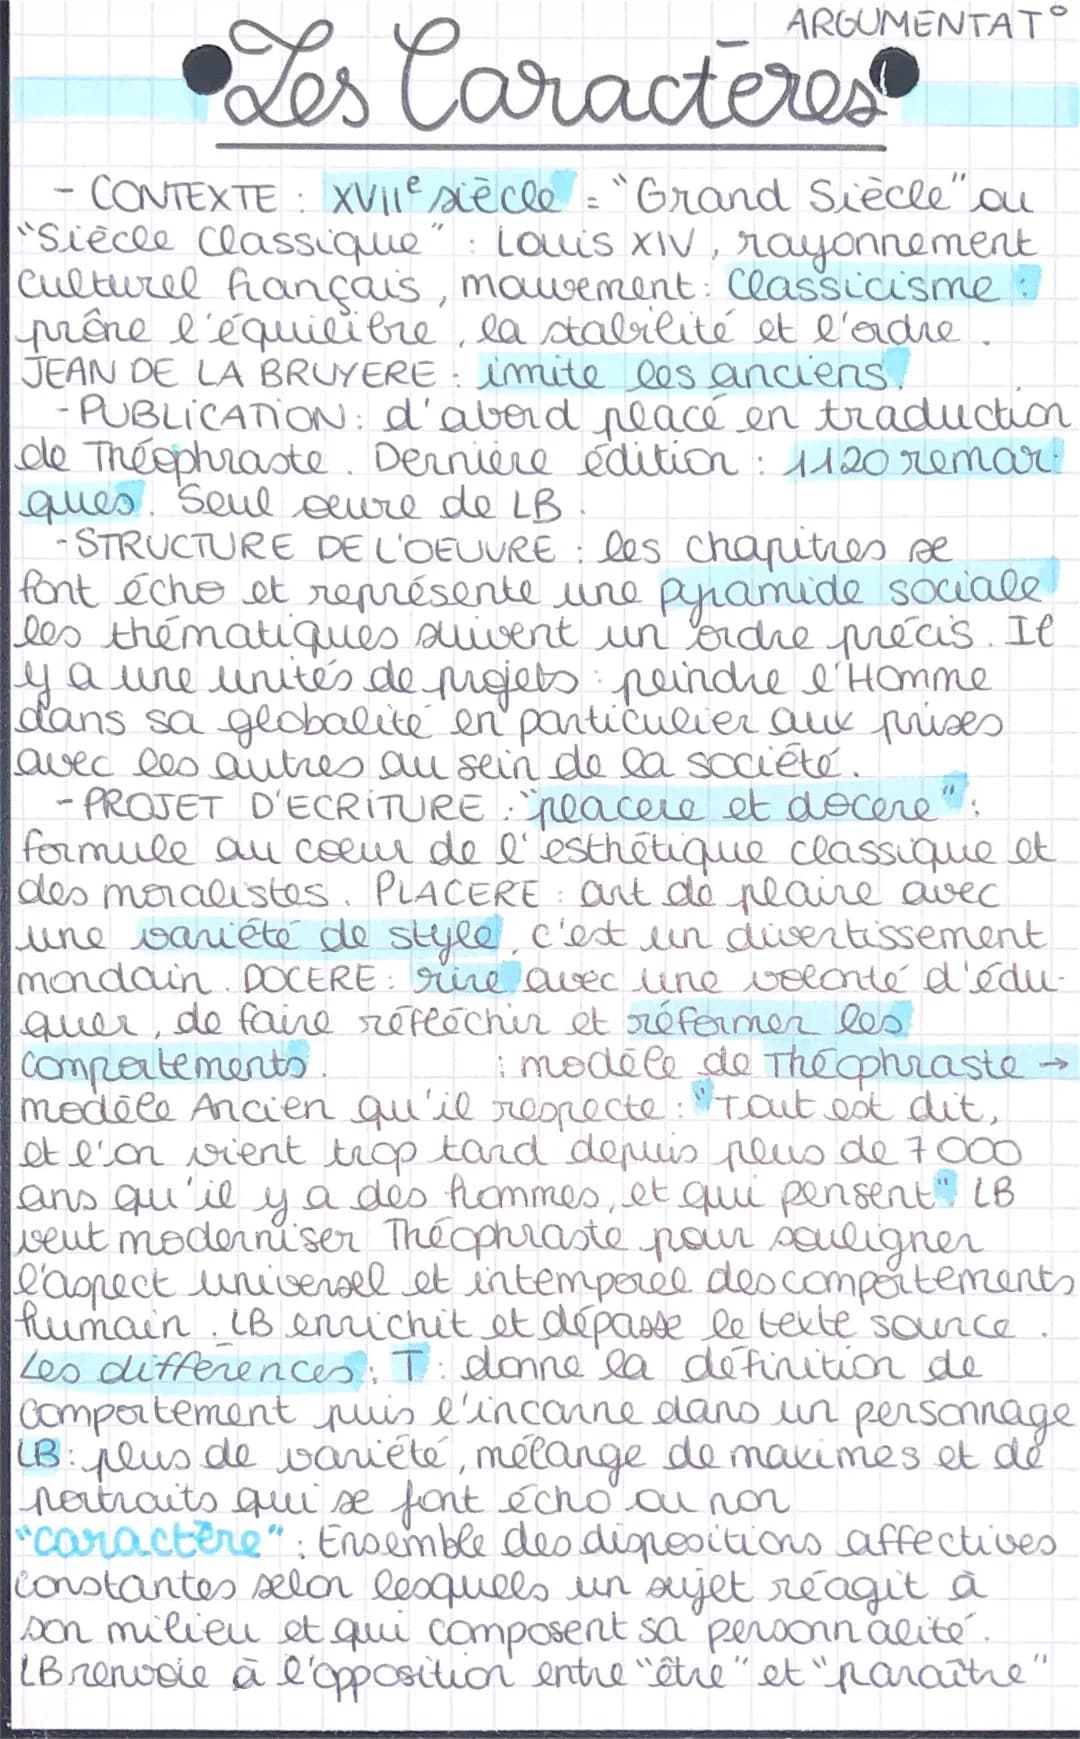 ARGUMENTAT°
Les Caractères
- CONTEXTE : XVIIe siècle = "Grand Siècle" ou
"Siècle Classique" : Louis XIV, rayonnement
culturel français, mouvement : Classicisme :
prône l'équilibre, la stabilité et l'ordre.
JEAN DE LA BRUYERE : imite les anciens.
- PUBLICATION : d'abord placé en traduction
de Théophraste. Dernière édition : 1120 remar-
ques. Seul oeure de LB.
- STRUCTURE DE L'OEUVRE : les chapitres se
font écho et représente une pyramide sociale
les thématiques suivent un ordre précis. Il
y a une unités de projets : peindre l'Homme
dans sa globalité en particulier aux prises
avec les autres au sein de la société.
- PROJET D'ECRITURE : "placere et docere" :
formule au coeur de l'esthétique classique et
des moralistes. PLACERE : art de plaire avec
une variété de style, c'est un divertissement
mondain. DOCERE : rire avec une volonté d'édu-
quer, de faire réfléchir et réformer les
comportements. : modèle de Théophraste →
modèle Ancien qu'il respecte : "Tout est dit,
et l'on vient trop tard depuis plus de 7000
ans qu'il y a des hommes, et qui pensent" LB
veut moderniser Théophraste pour souligner
l'aspect universel et intemporel des comportements
humain. LB enrichit et dépasse le texte source.
Les différences : T : donne la définition de
comportement puis l'incarne dans un personnage
LB : plus de variété, mélange de maximes et de
portraits qui se font écho ou non
"caractère" : Ensemble des dispositions affectives
constantes selon lesquels un sujet réagit à
son milieu et qui composent sa personnalité.
LB renvoie à l'opposition entre "être" et "paraître"